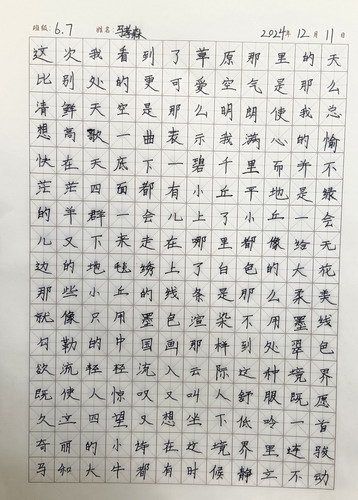 班级: 6.7 姓名 2024年12月11
这次我看到了草原那里的天
比别处的更可爱空气是那么
清鲜天空是那么明朗使我总
想高歌一曲表示我满心的愉
快在天底下一碧千里而并不
茫茫四面都有小丘平地是绿
的羊群一会儿上了小丘一会
儿又下来走在哪里都像给无
边的地毯绣上了白色的大花
那些小丘的线条是那么柔美
就像只用墨色渲染不用墨线
勾勒的中国画那样到处翠色
欲流轻轻流入云际这种境界
既使人惊叹又叫人舒服既愿
久立四望又想坐下低吟一首
奇丽的小诗在这境界里连骏
马和大牛都有时候静立不动